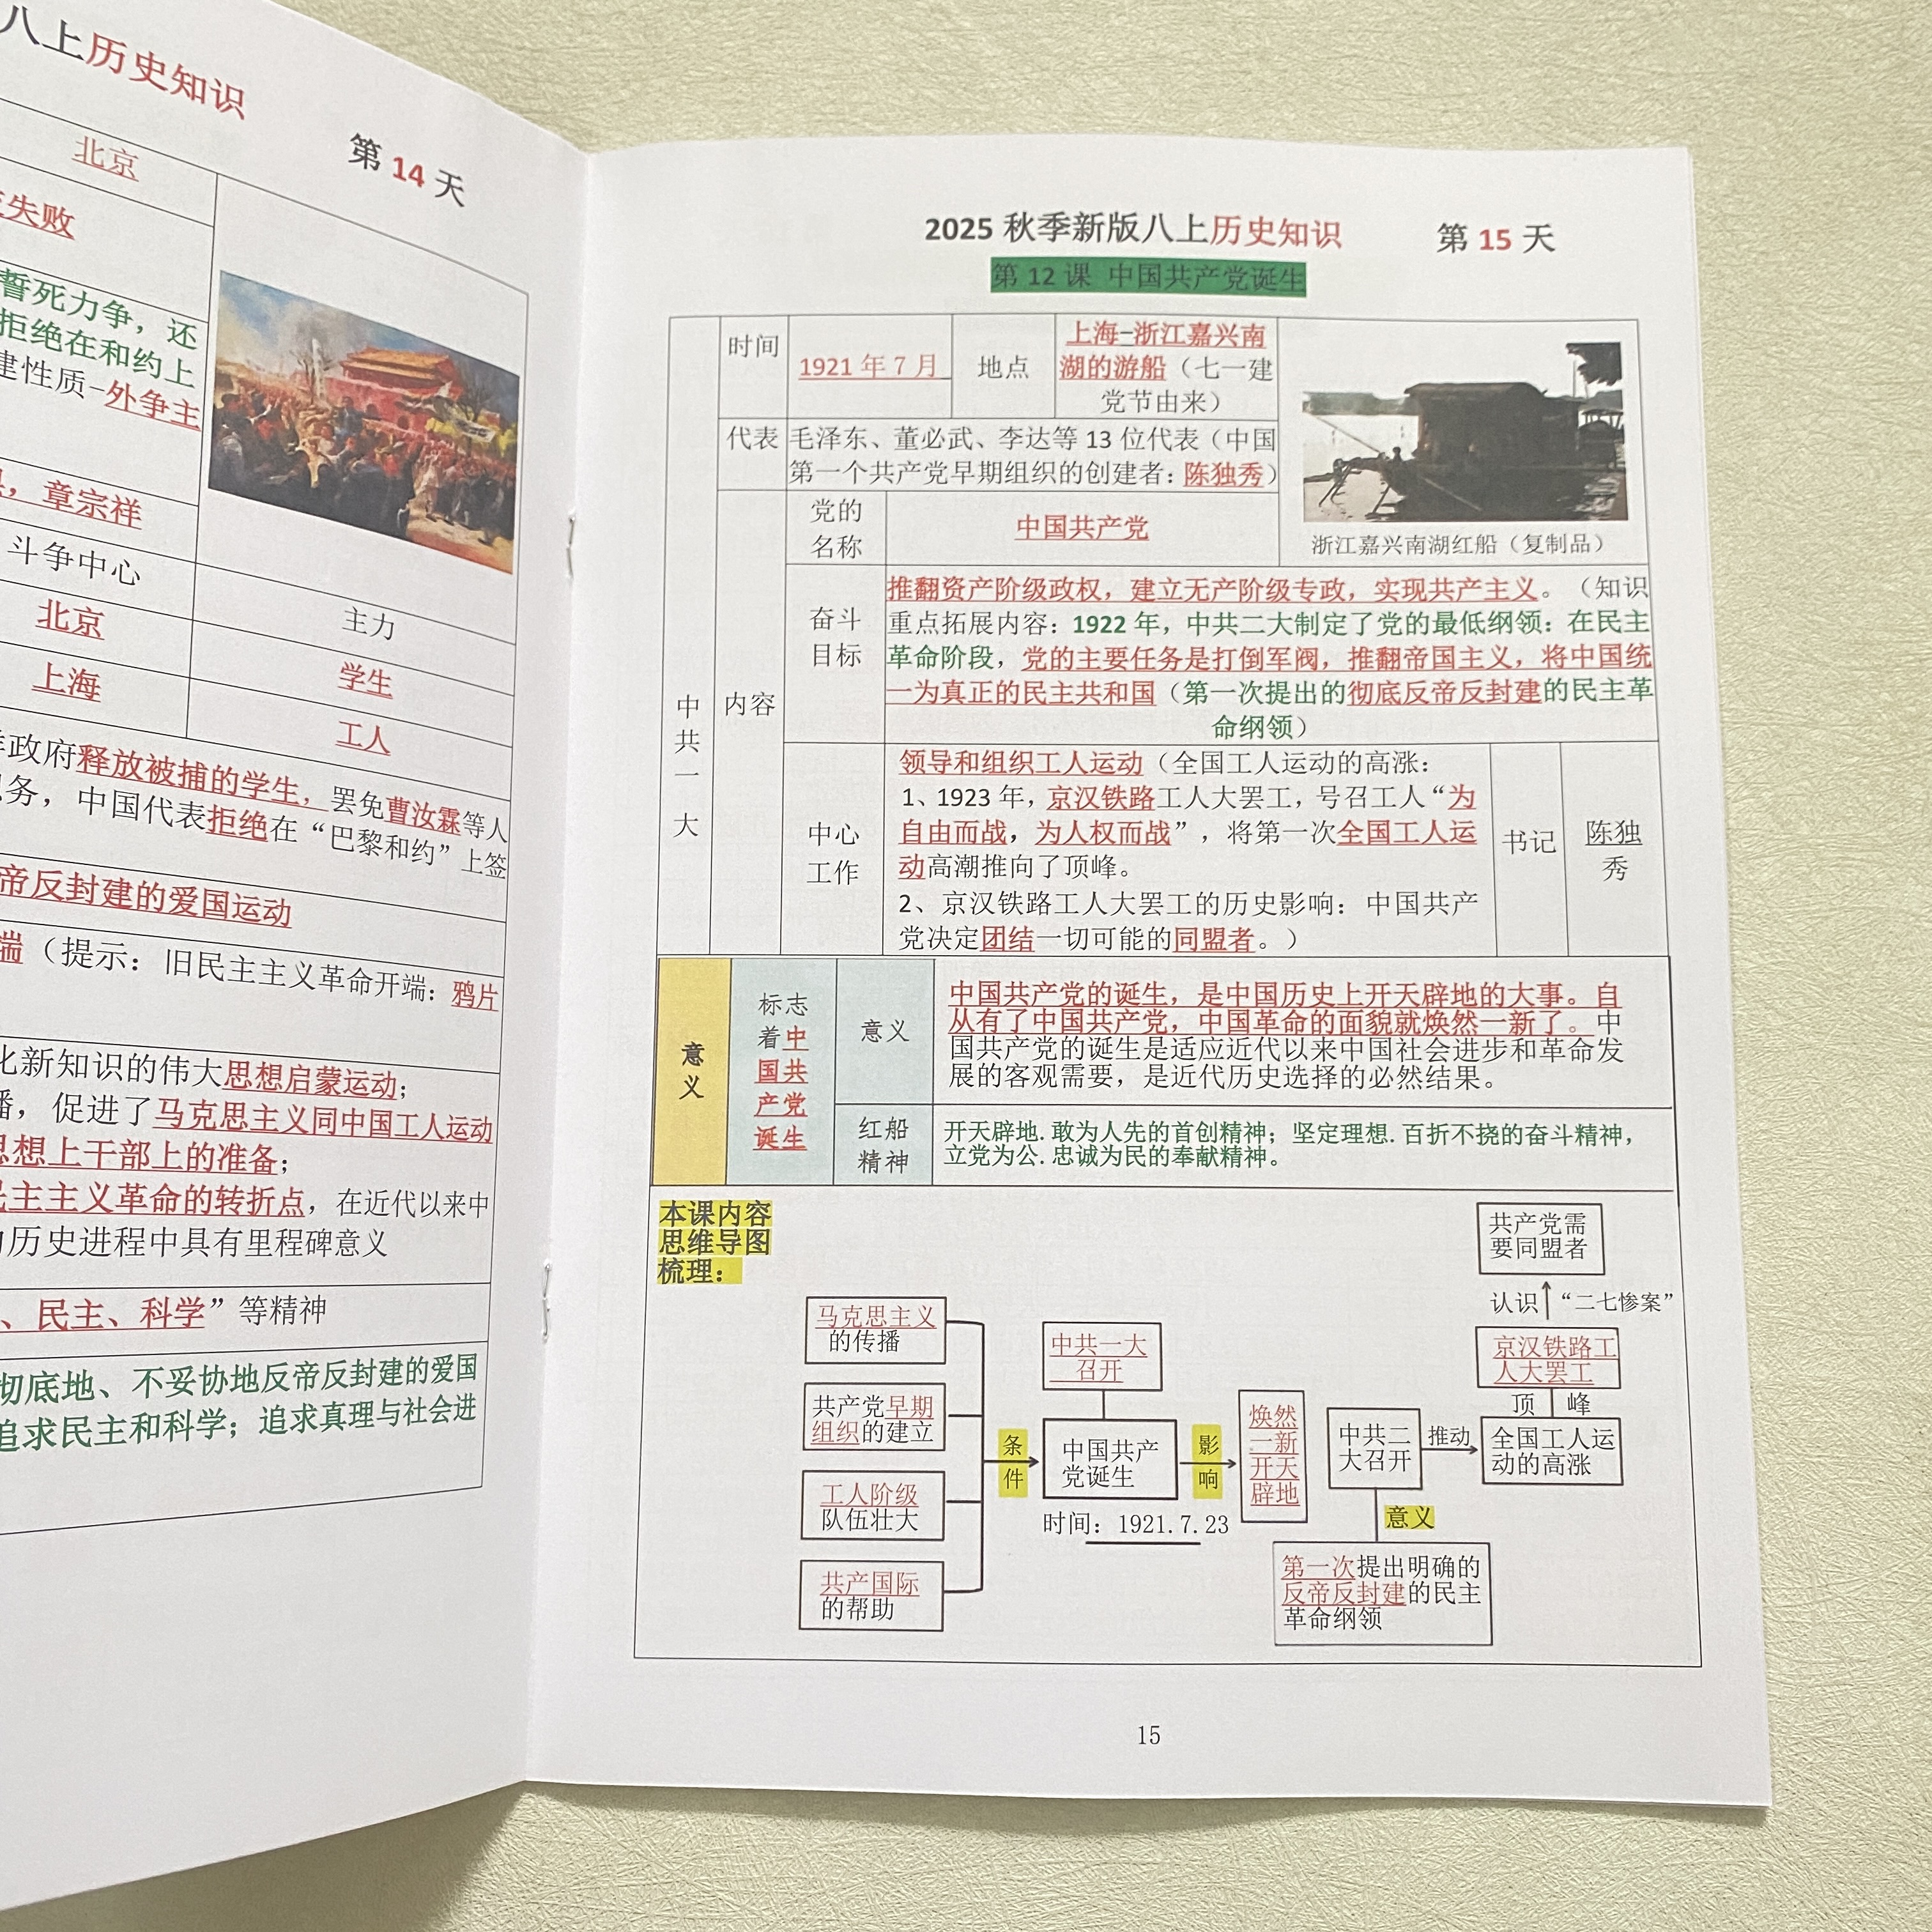 八上历史知识
第 14 天
北京
失败
誓死力争，还
拒绝在和约上
建性质-外争主
，章宗祥
斗争中心
主力
北京
学生
上海
工人
政府释放被捕的学生，罢免曹汝霖等人
务，中国代表拒绝在“巴黎和约”上签
帝反封建的爱国运动
端（提示：旧民主主义革命开端：鸦片
化新知识的伟大思想启蒙运动；
播，促进了马克思主义同中国工人运动
思想上干部上的准备；
民主主义革命的转折点，在近代以来中
历史进程中具有里程碑意义
、民主、科学”等精神
彻底地、不妥协地反帝反封建的爱国
追求民主和科学；追求真理与社会进
2025 秋季新版八上历史知识
第 15 天
第 12 课 中国共产党诞生
中共一大
时间
1921 年 7 月
地点
上海-浙江嘉兴南
湖的游船（七一建
党节由来）
代表
毛泽东、董必武、李达等 13 位代表（中国
第一个共产党早期组织的创建者：陈独秀）
浙江嘉兴南湖红船（复制品）
内容
党的
名称
中国共产党
奋斗
目标
推翻资产阶级政权，建立无产阶级专政，实现共产主义。（知识
重点拓展内容：1922 年，中共二大制定了党的最低纲领：在民主
革命阶段，党的主要任务是打倒军阀，推翻帝国主义，将中国统
一为真正的民主共和国（第一次提出的彻底反帝反封建的民主革
命纲领）
中心
工作
领导和组织工人运动（全国工人运动的高涨：
1、1923 年，京汉铁路工人大罢工，号召工人“为
自由而战，为人权而战”，将第一次全国工人运
动高潮推向了顶峰。
2、京汉铁路工人大罢工的历史影响：中国共产
党决定团结一切可能的同盟者。）
书记
陈独
秀
意
义
标志
着中
国共
产党
诞生
意义
中国共产党的诞生，是中国历史上开天辟地的大事。自
从有了中国共产党，中国革命的面貌就焕然一新了。中
国共产党的诞生是适应近代以来中国社会进步和革命发
展的客观需要，是近代历史选择的必然结果。
红船
精神
开天辟地.敢为人先的首创精神；坚定理想.百折不挠的奋斗精神，
立党为公.忠诚为民的奉献精神。
本课内容
思维导图
梳理：
马克思主义
的传播
共产党早期
组织的建立
工人阶级
队伍壮大
共产国际
的帮助
条
件
中共一大
召开
中国共产
党诞生
时间：1921.7.23
影
响
焕然
一新
开天
辟地
中共二
大召开
推动
意义
第一次提出明确的
反帝反封建的民主
革命纲领
共产党需
要同盟者
认识
“二七惨案”
京汉铁路工
人大罢工
顶 峰
全国工人运
动的高涨
15